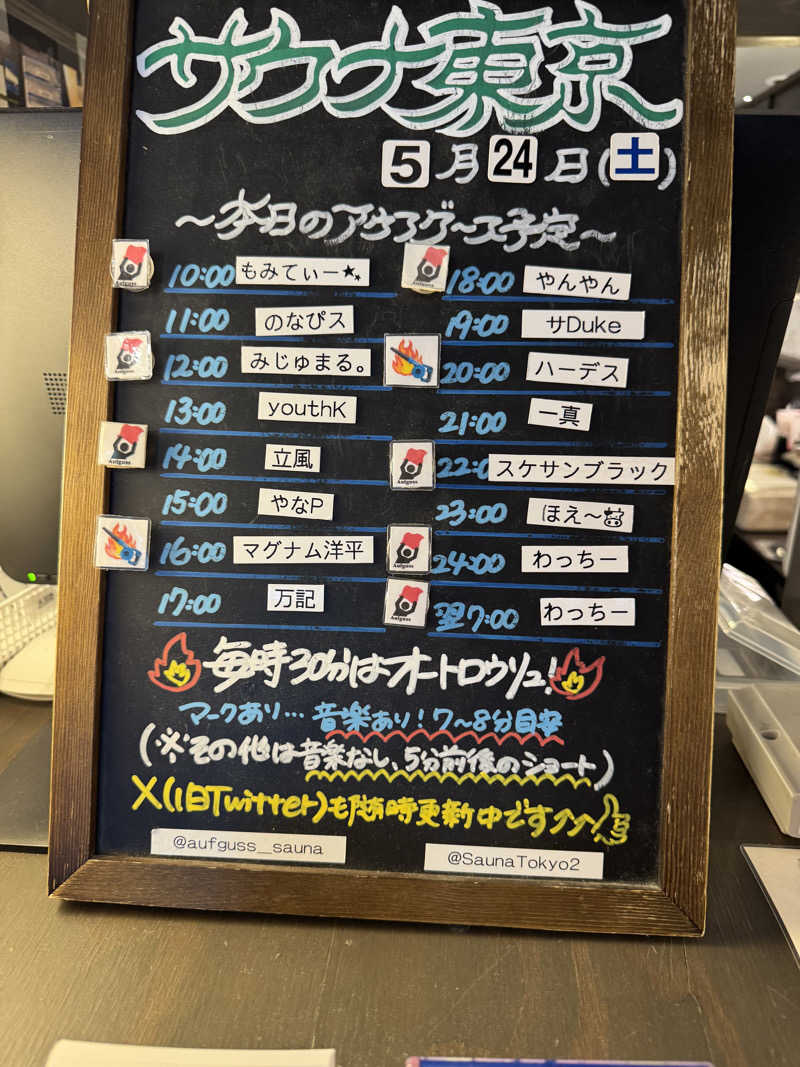 サウナ東京
5月24日(土)
～本日のアウフグース予定～
10:00 もみてぃー★
11:00 のなぴス
12:00 みじゅまる。
13:00 youthK
14:00 立風
15:00 やなP
16:00 マグナム洋平
17:00 万記
18:00 やんやん
19:00 サDuke
20:00 ハーデス
21:00 一真
22:00 スケサンブラック
23:00 ほえ〜
24:00 わっちー
翌7:00 わっちー
Aufguss
Aufguss
Aufguss
Aufguss
Aufguss
Aufguss
Aufguss
毎時30分はオートロウリュ!
マークあり…音楽あり!7～8分目安
(※その他は音楽なし、5分前後のショート)
X(旧Twitter)も随時更新中です⤴⤴
@aufguss__sauna
@SaunaTokyo2